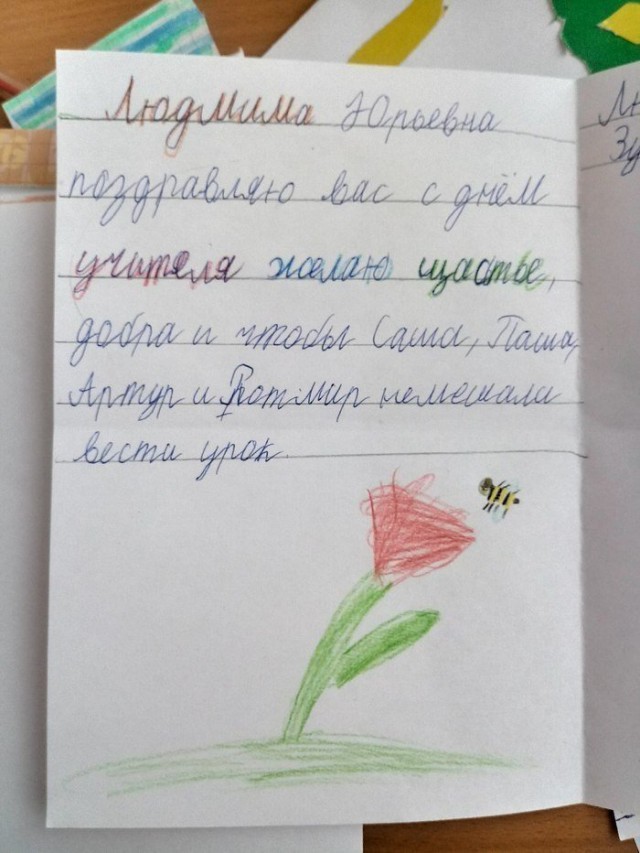 Людмима Юрьевна
поздравляю вас с днём
учителя желаю щастье,
добра и чтобы Саша, Паша,
Артур и Ротмир немешали
вести урок.